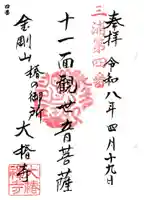 奉拝 令和八年四月十九日
三浦第四番
十一面観世音菩薩
金剛山 椿の御所
大椿寺